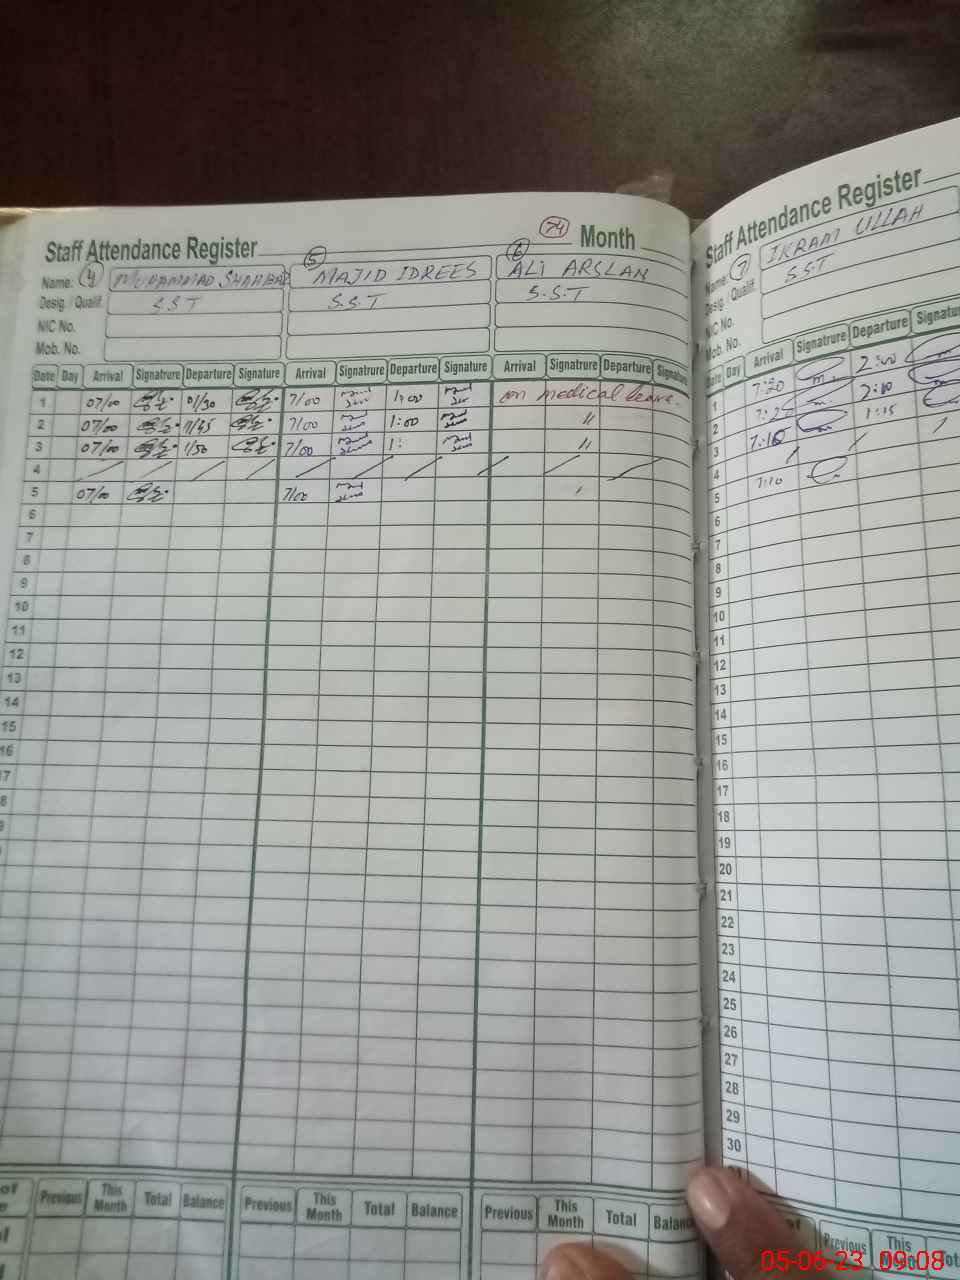 Staff Attendance Register 74 Month
Name: 4 MUHAMMAD SHAHBAZ 5 MAJID IDREES 6 ALI ARSLAN
Desig / Qualif. S.S.T S.S.T S.S.T
NIC No.
Mob. No.
Date Day Arrival Signatrure Departure Signature Arrival Signatrure Departure Signature Arrival Signatrure Departure Signature
1 07/00 01/30 7/00 1:00 on medical leave.
2 07/00 1/45 7/00 1:00 "
3 07/00 1/50 7/00 1: "
4
5 07/00 7/00
6
7
8
9
10
11
12
13
14
15
16
17
8
9
of Previous This Month Total Balance Previous This Month Total Balance Previous This Month Total Balance
Staff Attendance Register
Name: 7 IKRAM ULLAH
Desig / Qualif. S.S.T
NIC No.
Mob. No.
Date Day Arrival Signatrure Departure Signatu
1 7:20 2:00
2 7:20 2:10
3 7:10 1:15
4
5 7:10
6
7
8
9
10
11
12
13
14
15
16
17
18
19
20
21
22
23
24
25
26
27
28
29
30
31
of Previous This Month Tot
05-06-23 09:08